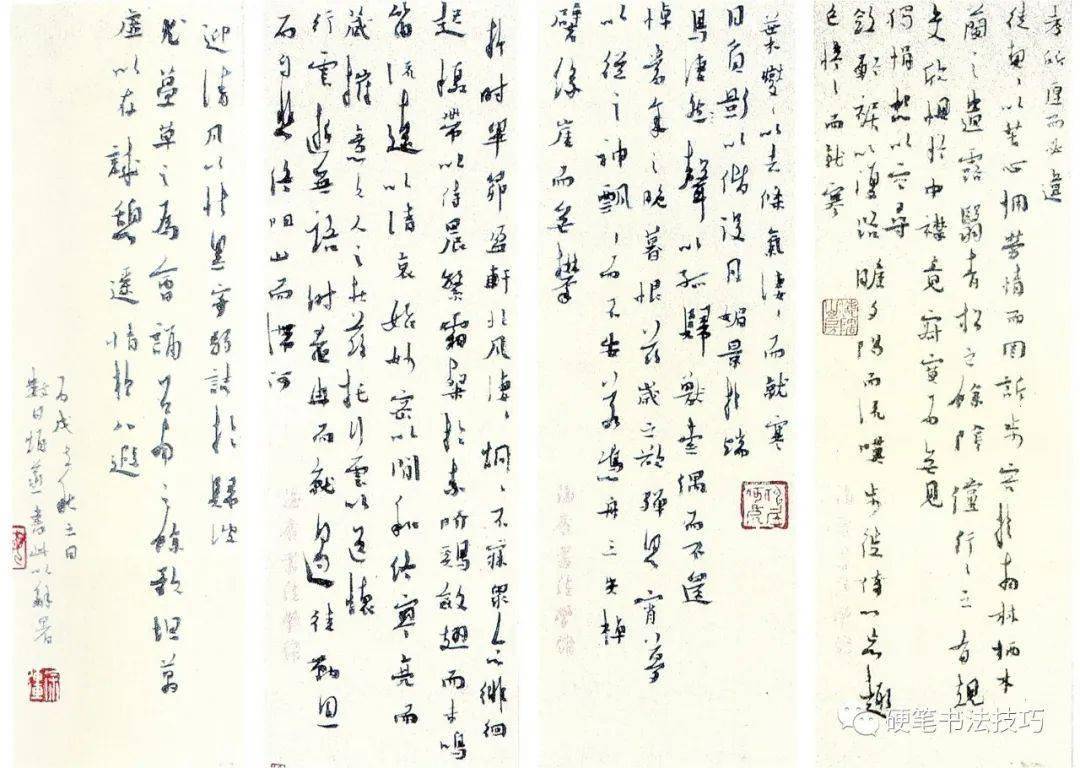 考所愿而必違
徒契々以苦心擁勞情而罔訴步容於南林栖木
蘭之遺露翳青松之餘陰儻行々之有覿
交欣懼於中襟竟寂寞而無見
獨悁想以空尋
斂輕裾以復路瞻夕陽而流嘆步徙倚以忘趣
色慘々而就寒
葉燮々以去條氣淒々而就寒
日負影以偕沒月媚景於端
鳥淒然聲以孤歸獸索偶而不還
悼當年之晚暮恨茲歲之欲殫思宵夢
以從之神飄々而不安若憑舟之失棹
譬緣崖而無攀
於時畢昴盈軒北風淒々炯々不寐眾念徘徊
起攝帶以侍晨繁霜粲於素階鷄斂翅而未鳴
笛流遠以清哀始妙密以閒和終寥亮而
藏摧意夫人之在茲托行雲以送懷
行雲逝無語時奄冉而就過徒勤思
而自悲終阻山而滯河
迎清風以祛累寄弱誌於歸波
尤蔓草之為會誦召南之餘歌坦萬
慮以存誠憩遙情於八遐
丙戌之秋立日
書此以解暑
硬笔书法技巧